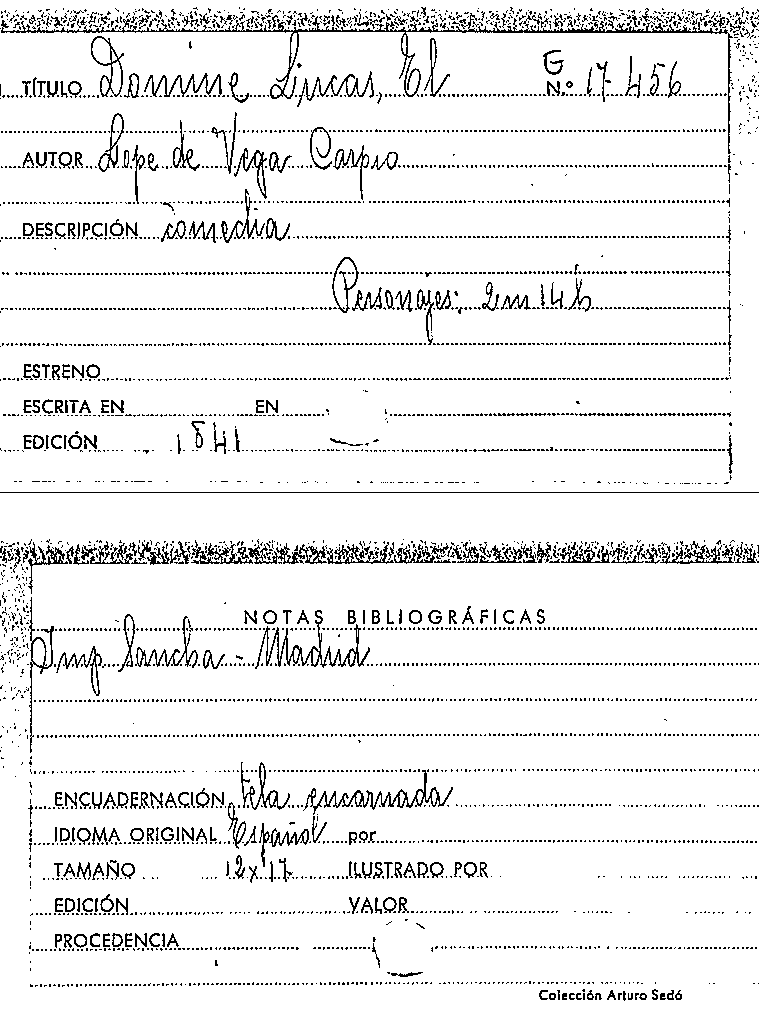 TÍTULO Domine Lucas, El G N.º 17-456
AUTOR Lope de Vega Carpio
DESCRIPCIÓN comedia
Personajes: 2m 14h
ESTRENO
ESCRITA EN EN
EDICIÓN 1841
NOTAS BIBLIOGRÁFICAS
Imp Sancha - Madrid
ENCUADERNACIÓN tela encarnada
IDIOMA ORIGINAL Español por
TAMAÑO 12x17 ILUSTRADO POR
EDICIÓN VALOR
PROCEDENCIA
Colección Arturo Sedó